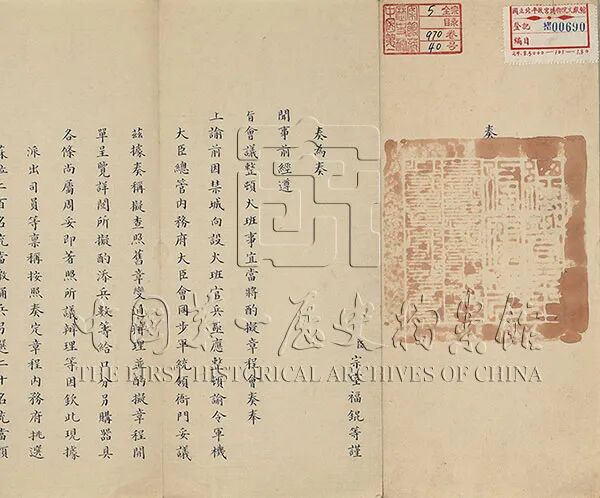 國立北平故宮博物院文獻館
登記
00690
編目
全宗 5
目录 970
卷号 40
奏
臣宗室福錕等謹
奏為奏
聞事前經遵
旨會議整頓大班事宜當將酌擬章程會奏奉
上諭前因禁城向設大班官兵亟應整頓諭令軍機
大臣總管內務府大臣會同步軍統領衙門妥議
茲據奏稱擬查照舊章變通辦理並酌擬章程開
單呈覽詳閱所擬酌添兵數籌給口分另購器具
各條尚屬周妥即著照所議辦理等因欽此現據
派出司員等稟稱按照奏定章程內務府挑選
二百名充當兵另選二十名充當領
中国第一歷史檔案館
THE FIRST HISTORICAL ARCHIVES OF CHINA